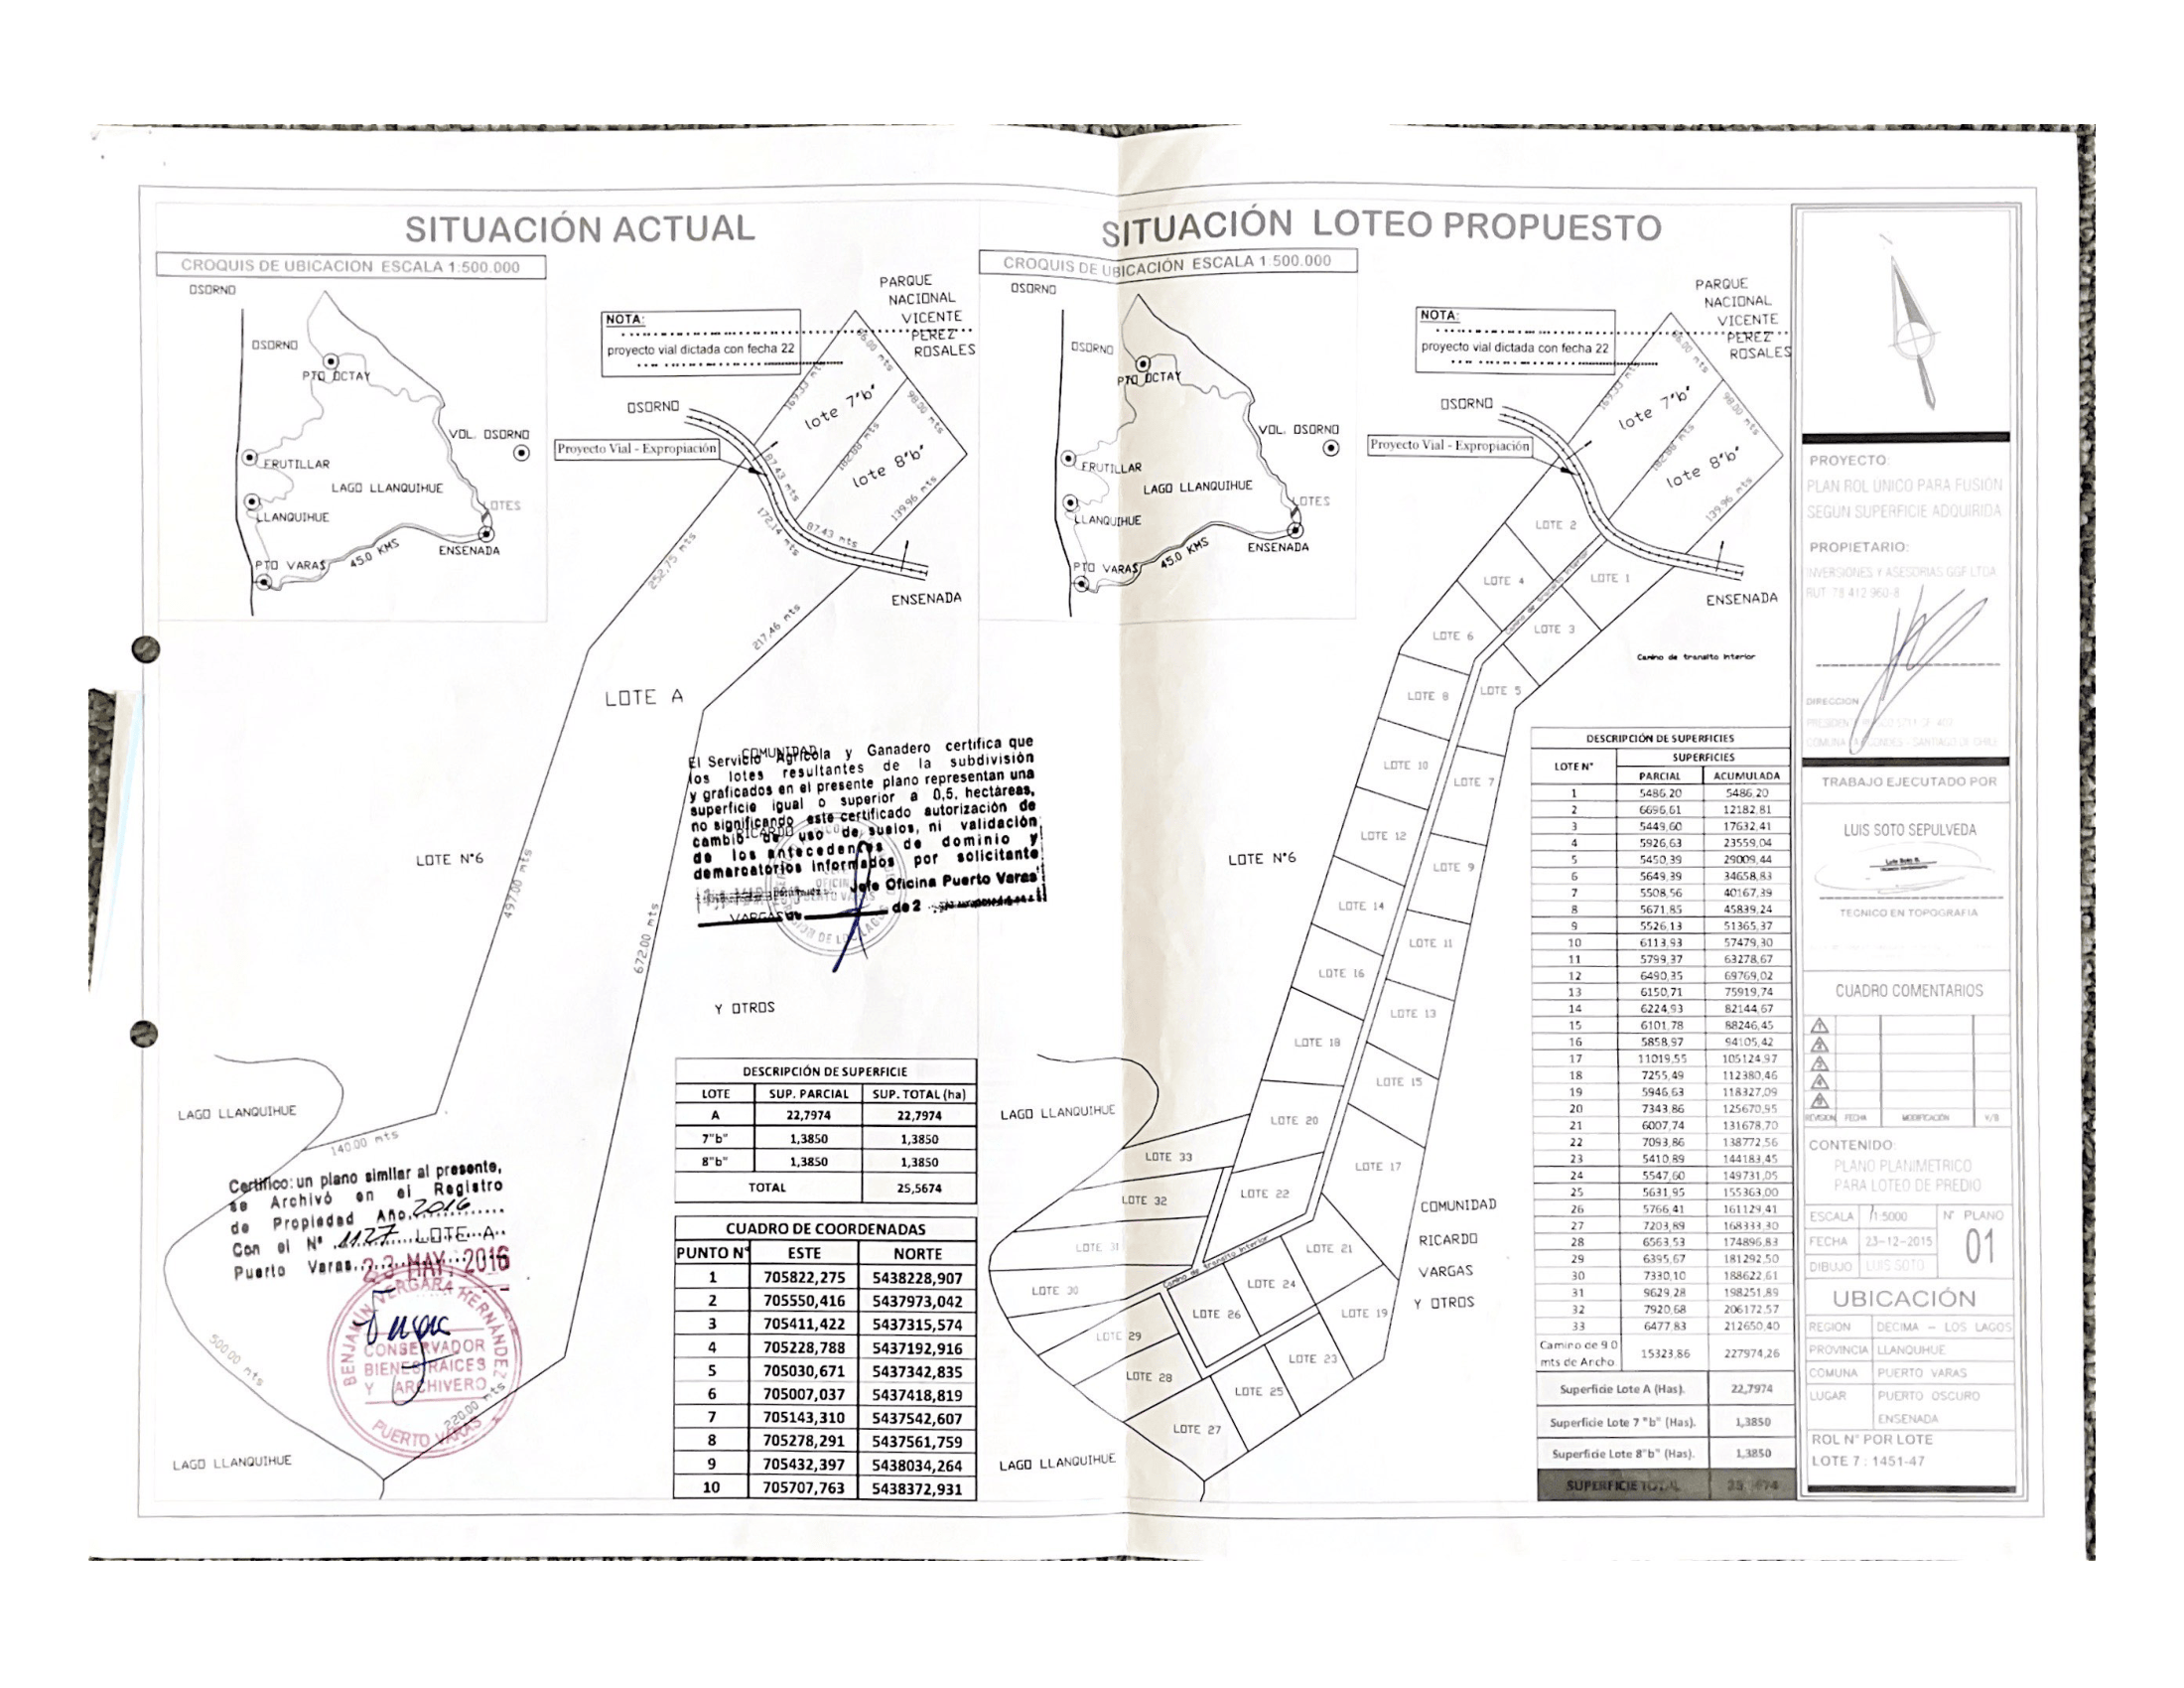 SITUACIÓN ACTUAL
CROQUIS DE UBICACION ESCALA 1:500.000
OSORNO
OSORNO
PTO OCTAY
VOL. OSORNO
FRUTILLAR
LAGO LLANQUIHUE
LOTES
LLANQUIHUE
ENSENADA
PTO VARAS
45.0 KMS
PARQUE
NACIONAL
VICENTE
PEREZ
ROSALES
NOTA:
proyecto vial dictada con fecha 22
96.00 mts
169.33 mts
lote 7"b"
98.00 mts
OSORNO
182.88 mts
lote 8"b"
Proyecto Vial - Expropiación
87.43 mts
139.96 mts
172.14 mts
87.43 mts
ENSENADA
252.75 mts
217.46 mts
LOTE A
COMUNIDAD
El Servicio Agrícola y Ganadero certifica que
los lotes resultantes de la subdivisión
y graficados en el presente plano representan una
superficie igual o superior a 0,5, hectáreas,
no significando este certificado autorización de
cambio de uso de suelos, ni validación
RICARDO
de los antecedentes de dominio y
demarcatorios informados por solicitante
Jefe Oficina Puerto Varas
VARGAS
de 2
LOTE N°6
497.00 mts
672.00 mts
Y OTROS
LAGO LLANQUIHUE
140.00 mts
Certifico: un plano similar al presente,
se Archivó en el Registro
de Propiedad Año 2016
Con el N° 1127 LOTE A
Puerto Varas 23 MAY. 2016
BENJAMIN VERGARA HERNÁNDEZ
CONSERVADOR
BIENES RAICES
Y ARCHIVERO
PUERTO VARAS
500.00 mts
220.00 mts
LAGO LLANQUIHUE
DESCRIPCIÓN DE SUPERFICIE
LOTE SUP. PARCIAL SUP. TOTAL (ha)
A 22,7974 22,7974
7"b" 1,3850 1,3850
8"b" 1,3850 1,3850
TOTAL 25,5674
CUADRO DE COORDENADAS
PUNTO N° ESTE NORTE
1 705822,275 5438228,907
2 705550,416 5437973,042
3 705411,422 5437315,574
4 705228,788 5437192,916
5 705030,671 5437342,835
6 705007,037 5437418,819
7 705143,310 5437542,607
8 705278,291 5437561,759
9 705432,397 5438034,264
10 705707,763 5438372,931
SITUACIÓN LOTEO PROPUESTO
CROQUIS DE UBICACIÓN ESCALA 1:500.000
OSORNO
OSORNO
PTO OCTAY
VOL. OSORNO
FRUTILLAR
LAGO LLANQUIHUE
LOTES
LLANQUIHUE
ENSENADA
PTO VARAS
45.0 KMS
PARQUE
NACIONAL
VICENTE
PEREZ
ROSALES
NOTA:
proyecto vial dictada con fecha 22
96.00 mts
169.33 mts
lote 7"b"
98.00 mts
OSORNO
182.88 mts
lote 8"b"
Proyecto Vial - Expropiación
139.96 mts
LOTE 2
LOTE 4
LOTE 1
ENSENADA
Camino de transito interior
LOTE 6
LOTE 3
Camino de transito interior
LOTE 8
LOTE 5
LOTE 10
LOTE 7
LOTE 12
LOTE N°6
LOTE 9
LOTE 14
LOTE 11
LOTE 16
LOTE 13
LOTE 18
LOTE 15
LAGO LLANQUIHUE
LOTE 20
LOTE 33
LOTE 17
LOTE 32
LOTE 22
COMUNIDAD
RICARDO
VARGAS
Y OTROS
LOTE 31
Camino de transito interior
LOTE 21
LOTE 30
LOTE 24
LOTE 26
LOTE 19
LOTE 29
LOTE 23
LOTE 28
LOTE 25
LOTE 27
LAGO LLANQUIHUE
DESCRIPCIÓN DE SUPERFICIES
LOTE N° SUPERFICIES
PARCIAL ACUMULADA
1 5486,20 5486,20
2 6696,61 12182,81
3 5449,60 17632,41
4 5926,63 23559,04
5 5450,39 29009,44
6 5649,39 34658,83
7 5508,56 40167,39
8 5671,85 45839,24
9 5526,13 51365,37
10 6113,93 57479,30
11 5799,37 63278,67
12 6490,35 69769,02
13 6150,71 75919,74
14 6224,93 82144,67
15 6101,78 88246,45
16 5858,97 94105,42
17 11019,55 105124,97
18 7255,49 112380,46
19 5946,63 118327,09
20 7343,86 125670,95
21 6007,74 131678,70
22 7093,86 138772,56
23 5410,89 144183,45
24 5547,60 149731,05
25 5631,95 155363,00
26 5766,41 161129,41
27 7203,89 168333,30
28 6563,53 174896,83
29 6395,67 181292,50
30 7330,10 188622,61
31 9629,28 198251,89
32 7920,68 206172,57
33 6477,83 212650,40
Camino de 9.0
mts de Ancho 15323,86 227974,26
Superficie Lote A (Has). 22,7974
Superficie Lote 7 "b" (Has). 1,3850
Superficie Lote 8"b" (Has). 1,3850
SUPERFICIE TOTAL
PROYECTO:
PLAN ROL UNICO PARA FUSION
SEGUN SUPERFICIE ADQUIRIDA
PROPIETARIO:
INVERSIONES Y ASESORIAS GGF LTDA
RUT: 78.412.960-8
DIRECCION
TRABAJO EJECUTADO POR
LUIS SOTO SEPULVEDA
TECNICO EN TOPOGRAFIA
CUADRO COMENTARIOS
REVISION FECHA MODIFICACIÓN V/B
CONTENIDO:
PLANO PLANIMETRICO
PARA LOTEO DE PREDIO
ESCALA 1:5000 N° PLANO
FECHA 23-12-2015 01
DIBUJO LUIS SOTO
UBICACIÓN
REGION DECIMA - LOS LAGOS
PROVINCIA LLANQUHUE
COMUNA PUERTO VARAS
LUGAR PUERTO OSCURO
ENSENADA
ROL N° POR LOTE
LOTE 7 : 1451-47